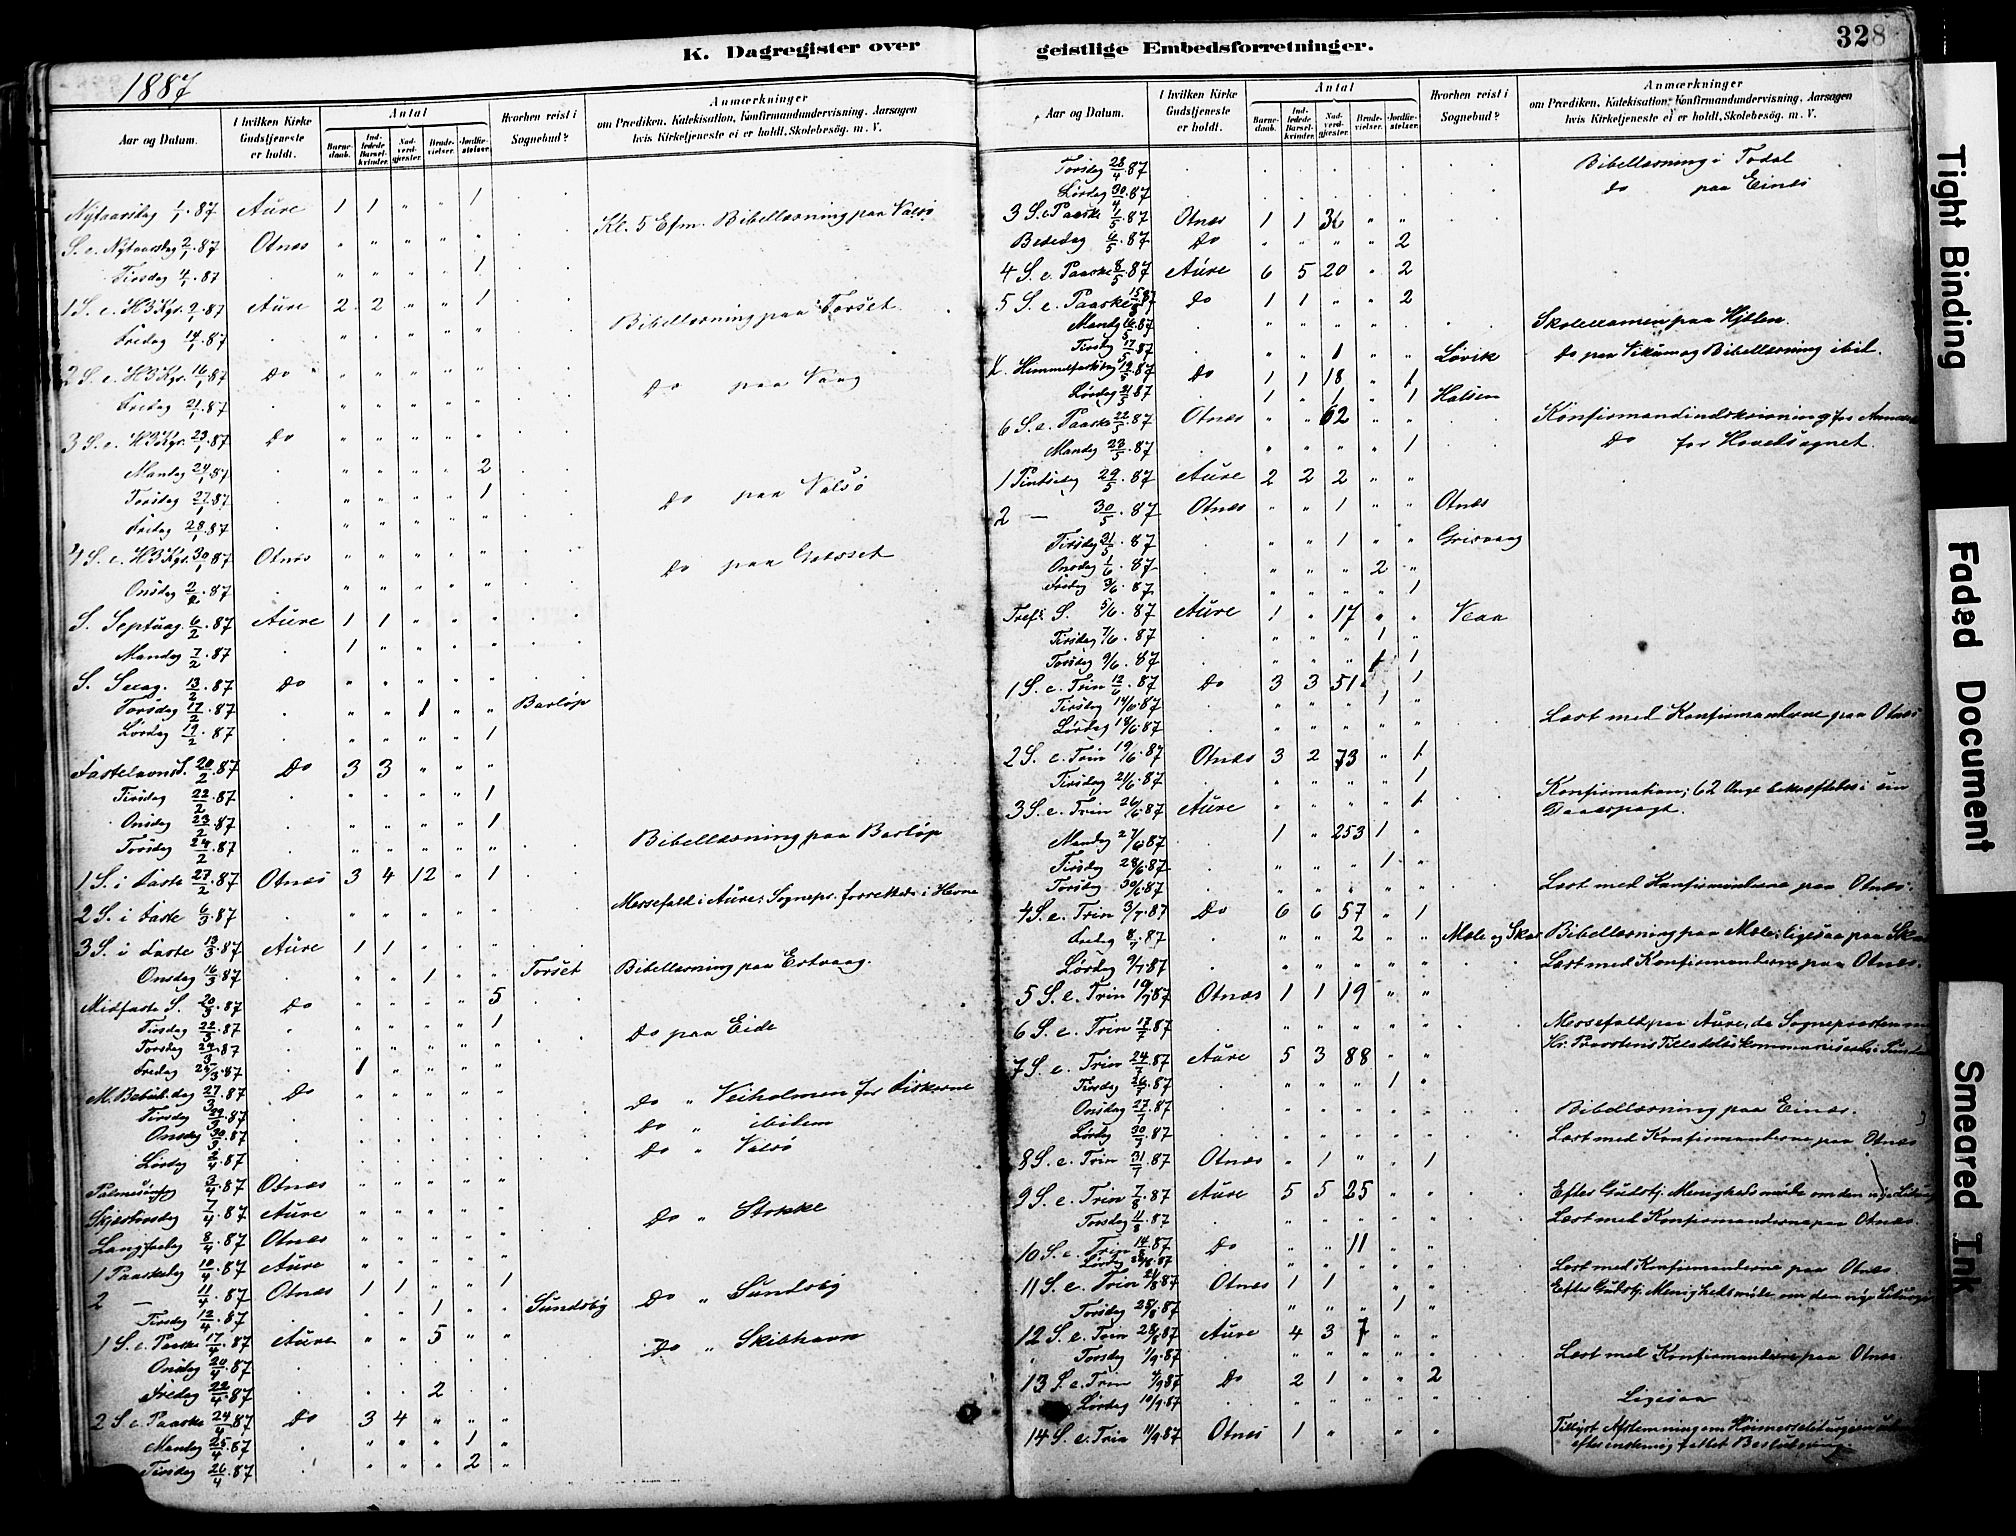 K. Dagregister over
1887
Aar og Datum.
I hvilken Kirke Gudstjeneste er holdt.
Antal
Barnedaab.
Indledede Barselkvinder.
Nadverdgjester.
Brudevielser.
Jordfæstelser.
Hvorhen reist i Sognebud?
Anmærkninger
om Prædiken, Katekisation, Konfirmandundervisning, Aarsagen
hvis Kirketjeneste ei er holdt, Skolebesøg. m. V.
Nytaarsdag 1/1.87 Aure 1 1 " " 1
Kl. 5 Efm. Bibellæsning paa Valsø
S. e. Nytaarsdag 2/1.87 Otnes " " " " "
Tirsdag 4/1.87 . " " " " 1
1 S. e. H3Kgr. 9/1.87 Aure 2 2 " " 1
Fredag 14/1.87 . " " " " " Bibellæsning paa Torset
2 S. e. H3Kgr. 16/1.87 Do " " " " "
Fredag 21/1.87 . " " " " " Do paa Vaag
3 S. e. H3Kgr. 23/1.87 Do " " " " "
Mandag 24/1.87 . " " " " 2
Torsdag 27/1.87 . " " " " 1
Fredag 28/1.87 . " " " " " Do paa Valsø
4 S. e. H3Kgr. 30/1.87 Otnes " " " " "
Onsdag 2/2.87 . " " " " " Do paa
S. Septuag. 6/2.87 Aure 1 1 " " "
Mandag 7/2.87 . 1 " " " "
S. Sexag. 13/2.87 Do " " " " "
Torsdag 17/2.87 . " " 1 " " Barløp
Lørdag 19/2.87 . " " " " 1
Fastelavns S. 20/2.87 Do 3 3 " " "
Tirsdag 22/2.87 . " " " " 1
Onsdag 23/2.87 . " " " " 1
Torsdag 24/2.87 . " " " " " Bibellæsning paa Barløp
1 S. i Faste 27/2.87 Otnes 3 4 12 " 1
2 S. i Faste 6/3.87 . " " " " " Messefald i Aure; Sognepr. forrettede i Hevne
3 S. i Faste 13/3.87 Aure 1 1 " " "
Onsdag 16/3.87 . " " 1 " " Torset Bibellæsning paa Ertvaag.
Midfaste S. 20/3.87 Do " " " " 5
Tirsdag 22/3.87 . " " " " 1
Torsdag 24/3.87 . " " " " " Do paa Eide
Fredag 25/3.87 . 1 " " " "
M. Bebud. dag 27/3.87 Do " " " " "
Tirsdag 29/3.87 . Do " Veiholmen for Fiskerne
Onsdag 30/3.87 . Do " ibidem
Lørdag 2/4.87 . Do " Valsø
Palmesøndag 3/4.87 Otnes " " " " "
Skjærtorsdag 7/4.87 Aure " " " " " Do " Stokke
Langfredag 8/4.87 Otnes " " " " "
1 Paaskedag 10/4.87 Aure " " " " "
2 — 11/4.87 Otnes 1 1 " " 1
Tirsdag 12/4.87 . " " 1 " " Sundsby Do " Sundsby
1 S. e. Paaske 17/4.87 Aure " " 5 " "
Onsdag 20/4.87 . Do " Skibhavn
Fredag 22/4.87 . . . 2 . .
2 S. e. Paaske 24/4.87 Do 3 4 " " "
Mandag 25/4.87 . " " " 1 "
Tirsdag 26/4.87 . " " " 2 "
geistlige Embedsforretninger.
328
Aar og Datum.
I hvilken Kirke Gudstjeneste er holdt.
Antal
Barnedaab.
Indledede Barselkvinder.
Nadverdgjester.
Brudevielser.
Jordfæstelser.
Hvorhen reist i Sognebud?
Anmærkninger
om Prædiken, Katekisation, Konfirmandundervisning, Aarsagen
hvis Kirketjeneste ei er holdt, Skolebesøg. m. V.
Torsdag 28/4.87 . Bibellæsning i Todal
Lørdag 30/4.87 . do paa Eines
3 S. e. Paaske 1/5.87 Otnes 1 1 36 " "
Bededag 6/5.87 Do " " " " 2
4 S. e. Paaske 8/5.87 Aure 6 5 20 " 2
5 S. e. Paaske 15/5.87 Do 1 1 " " 2
Mandag 16/5.87 . " " " " . Skoleexamen paa Hjellen.
Tirsdag 17/5.87 . " " 1 " " Løvik Do paa Vikum og Bibellæsning ibid.
K. Himmelfartsdag 19/5.87 Do 1 1 18 " 1
Lørdag 21/5.87 . 1 " 1 " 1 Halsen
6 S. e. Paaske 22/5.87 Otnes " " 62 " " Konfirmandindskrivning for
Mandag 23/5.87 . " " " " 1 Do for Hovedsognet.
1 Pintsedag 29/5.87 Aure 2 2 2 " "
2 — 30/5.87 Otnes " " 1 " " Otnes
Tirsdag 31/5.87 . " " 1 " " Grisvaag
Onsdag 1/6.87 . " " " 2 "
Fredag 3/6.87 . " " " " 1
Tref. S. 5/6.87 Aure 1 " 17 " " Vean
Tirsdag 7/6.87 . " " " 1 "
Torsdag 9/6.87 . " " " 1 1
1 S. e. Trin 12/6.87 Do 3 3 51 " 1
Tirsdag 14/6.87 . " " " 1 "
Lørdag 18/6.87 . " " " " " Læst med Konfirmanderne paa Otnes
2 S. e. Trin 19/6.87 Otnes 3 2 73 " 1
Tirsdag 21/6.87 . " " " " 1
3 S. e. Trin 26/6.87 Aure " " " " 1 Konfirmation; 62 Unge bekræftedes i sin
Daabspagt.
Mandag 27/6.87 1 " 253 1 "
Tirsdag 28/6.87 . " " " 1 "
Torsdag 30/6.87 . " " " " " Læst med Konfirmanderne paa Otnes.
4 S. e. Trin 3/7.87 Do 6 6 57 " 1
Fredag 8/7.87 . " " 2 " " Mæle og Skar Bibellæsning paa Mæle; ligesaa paa
Lørdag 9/7.87 . " " " " " Læst med Konfirmanderne paa Otnes.
5 S. e. Trin 10/7.87 Otnes 1 1 19 " "
6 S. e. Trin 17/7.87 . " " " " " Messefald paa Aure, da Sognepresten
7 S. e. Trin 24/7.87 Aure 5 3 88 " "
Tirsdag 26/7.87 . " " " 1 "
Onsdag 27/7.87 . " " " " " Bibellæsning paa Eines.
Lørdag 30/7.87 . " " " " " Læst med Konfirmanderne paa Otnes
8 S. e. Trin 31/7.87 Otnes " 1 " " 1
9 S. e. Trin 7/8.87 Aure 5 5 25 " " Efter Gudstj. Menighedsmøde om den nye Liturgi
Torsdag 11/8.87 . " " " " " Læst med Konfirmanderne paa Otnes.
10 S. e. Trin 14/8.87 Do " " 11 " "
Lørdag 20/8.87 . " " " " " Læst med Konfirmanderne paa Otnes
11 S. e. Trin 21/8.87 Otnes 1 1 " " " Efter Gudstj. Menighedsmøde om den nye Liturgi
Torsdag 25/8.87 . " " " 1 "
12 S. e. Trin 28/8.87 Aure 4 3 7 " "
Torsdag 1/9.87 " " " " " Læst med Konfirmanderne paa Otnes.
13 S. e. Trin 4/9.87 Do 2 1 " " 2
Lørdag 10/9.87 . " " " " " Ligesaa
14 S. e. Trin 11/9.87 Otnes 1 " " "
Tillyst Afstemning om Høimesseliturgien
Tight Binding
Faded Document
Smeared Ink